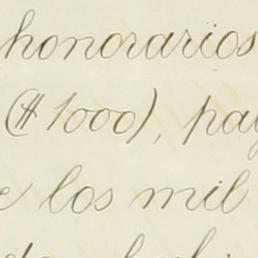 honorarios
($1000), pa
e los mil